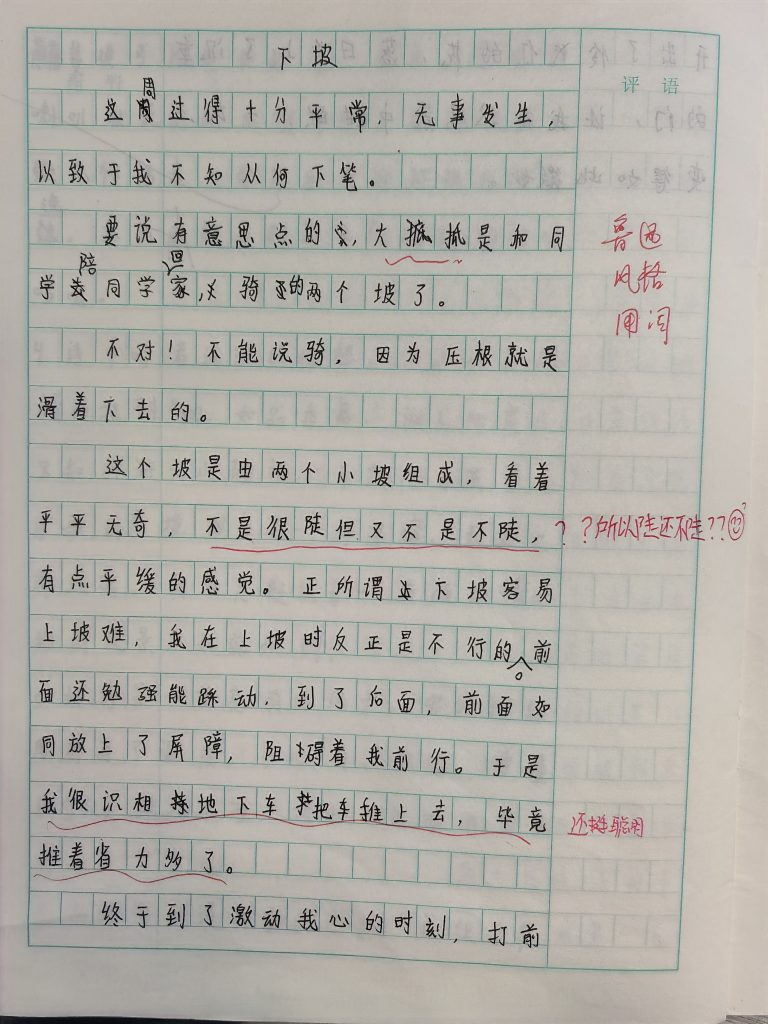 下坡
评语
这周过得十分平常，无事发生，
以致于我不知从何下笔。
要说有意思点的，大抵是和同
鲁迅
风格
用词
学陪同学回家，骑的两个坡了。
不对！不能说骑，因为压根就是
滑着下去的。
这个坡是由两个小坡组成，看着
平平无奇，不是很陡但又不是不陡，
？？所以陡还不陡？？
有点平缓的感觉。正所谓下坡容易
上坡难，我在上坡时反正是不行的。前
面还勉强能踩动，到了后面，前面如
同放上了屏障，阻碍着我前行。于是
我很识相地下车把车推上去，毕竟
还挺聪明
推着省力多了。
终于到了激动我心的时刻，打前